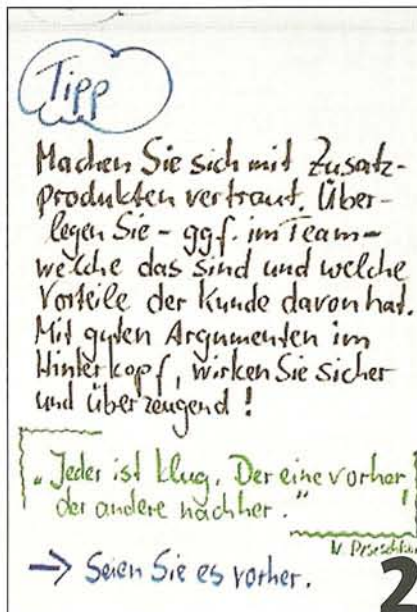 Tipp
Machen Sie sich mit Zusatz-
produkten vertraut. Über-
legen Sie - ggf. im Team -
welche das sind und welche
Vorteile der Kunde davon hat.
Mit guten Argumenten im
Hinterkopf, wirken Sie sicher
und überzeugend!
„Jeder ist klug. Der eine vorher,
der andere nachher."
→ Seien Sie es vorher.
2